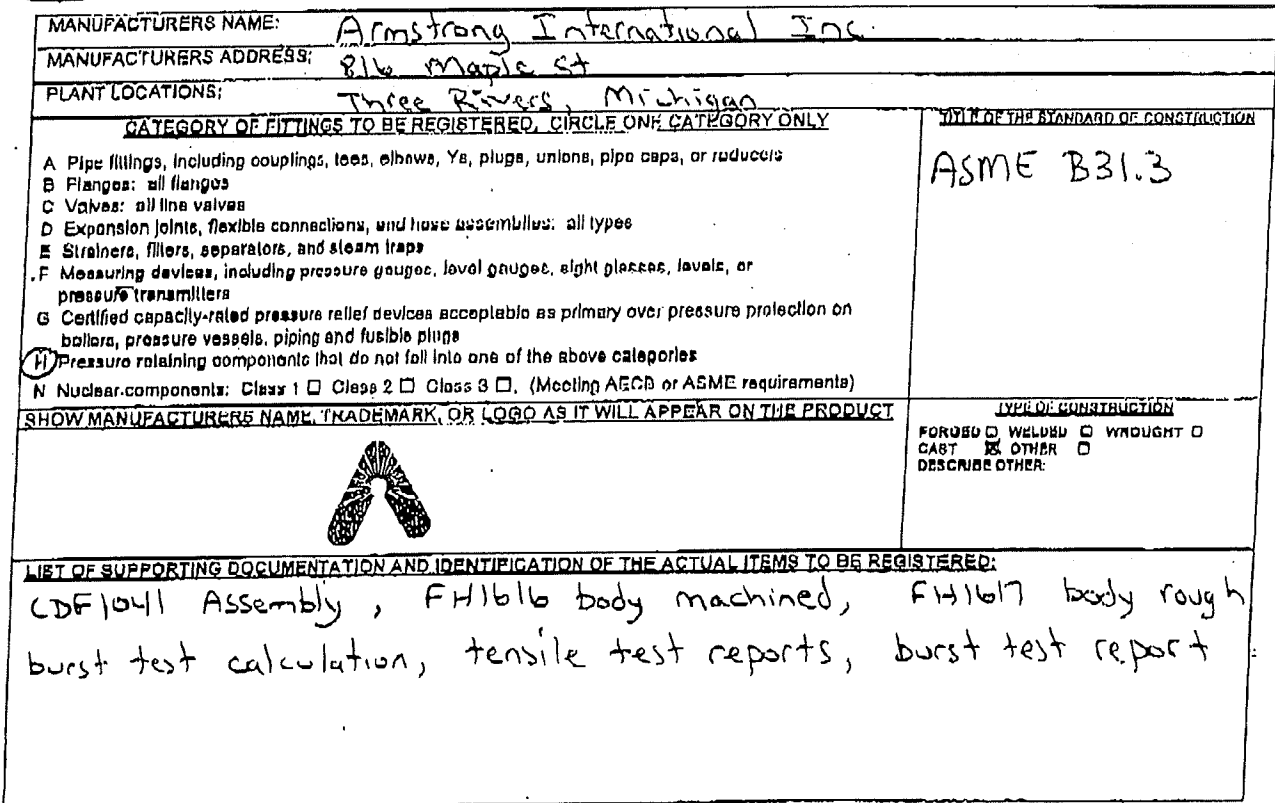 MANUFACTURERS NAME: Armstrong International Inc.
MANUFACTURERS ADDRESS: 816 Maple St
PLANT LOCATIONS: Three Rivers, Michigan
CATEGORY OF FITTINGS TO BE REGISTERED, CIRCLE ONE CATEGORY ONLY
A Pipe fittings, including couplings, tees, elbows, Ys, plugs, unions, pipe caps, or reducers
B Flanges: all flanges
C Valves: all line valves
D Expansion joints, flexible connections, and hose assemblies: all types
E Strainers, filters, separators, and steam traps
F Measuring devices, including pressure gauges, level gauges, sight glasses, levels, or
pressure transmitters
G Certified capacity-rated pressure relief devices acceptable as primary over pressure protection on
boilers, pressure vessels, piping and fusible plugs
H Pressure retaining components that do not fall into one of the above categories
N Nuclear components: Class 1 ☐ Class 2 ☐ Class 3 ☐. (Meeting AECB or ASME requirements)
TITLE OF THE STANDARD OF CONSTRUCTION
ASME B31.3
SHOW MANUFACTURERS NAME, TRADEMARK, OR LOGO AS IT WILL APPEAR ON THE PRODUCT
TYPE OF CONSTRUCTION
FORGED ☐ WELDED ☐ WROUGHT ☐
CAST ☒ OTHER ☐
DESCRIBE OTHER:
LIST OF SUPPORTING DOCUMENTATION AND IDENTIFICATION OF THE ACTUAL ITEMS TO BE REGISTERED:
CDF1041 Assembly, FH1616 body machined, FH1617 body rough
burst test calculation, tensile test reports, burst test report